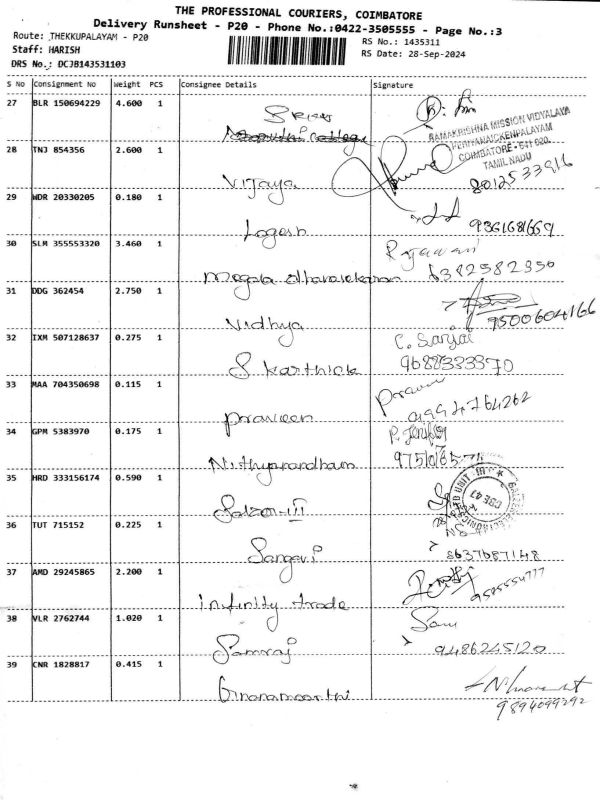 THE PROFESSIONAL COURIERS, COIMBATORE
Delivery Runsheet - P20 - Phone No.:0422-3505555 - Page No.:3
Route: THEKKUPALAYAM - P20
RS No.: 1435311
Staff: HARISH
RS Date: 28-Sep-2024
DRS No.: DCJB143531103
S No Consignment No Weight PCS Consignee Details Signature
27 BLR 150694229 4.600 1
RAMAKRISHNA MISSION VIDYALAYA
PERIYANAICKENPALAYAM
COIMBATORE - 641 020
TAMIL NADU
28 TNJ 854356 2.600 1
Vijaya 8012533916
29 WDR 20330205 0.180 1
Logesh 9361681669
30 SLM 355553320 3.460 1
Megala dhanasekaran 6382582350
31 DDG 362454 2.750 1
Vidhya 9500604166
32 IXM 507128637 0.275 1
C. Sanjai
S karthick 9688333370
33 MAA 704350698 0.115 1
Praveen 9994764262
34 GPM 5383970 0.175 1
Nithyanardham
35 HRD 333156174 0.590 1
Salzer-III
36 TUT 715152 0.225 1
Sangevi 8637687148
37 AMD 29245865 2.200 1
infinity trade 9585554777
38 VLR 2762744 1.020 1
Sam
Samraj 9486245120
39 CNR 1828817 0.415 1
Gnanamoorthi 9894099292